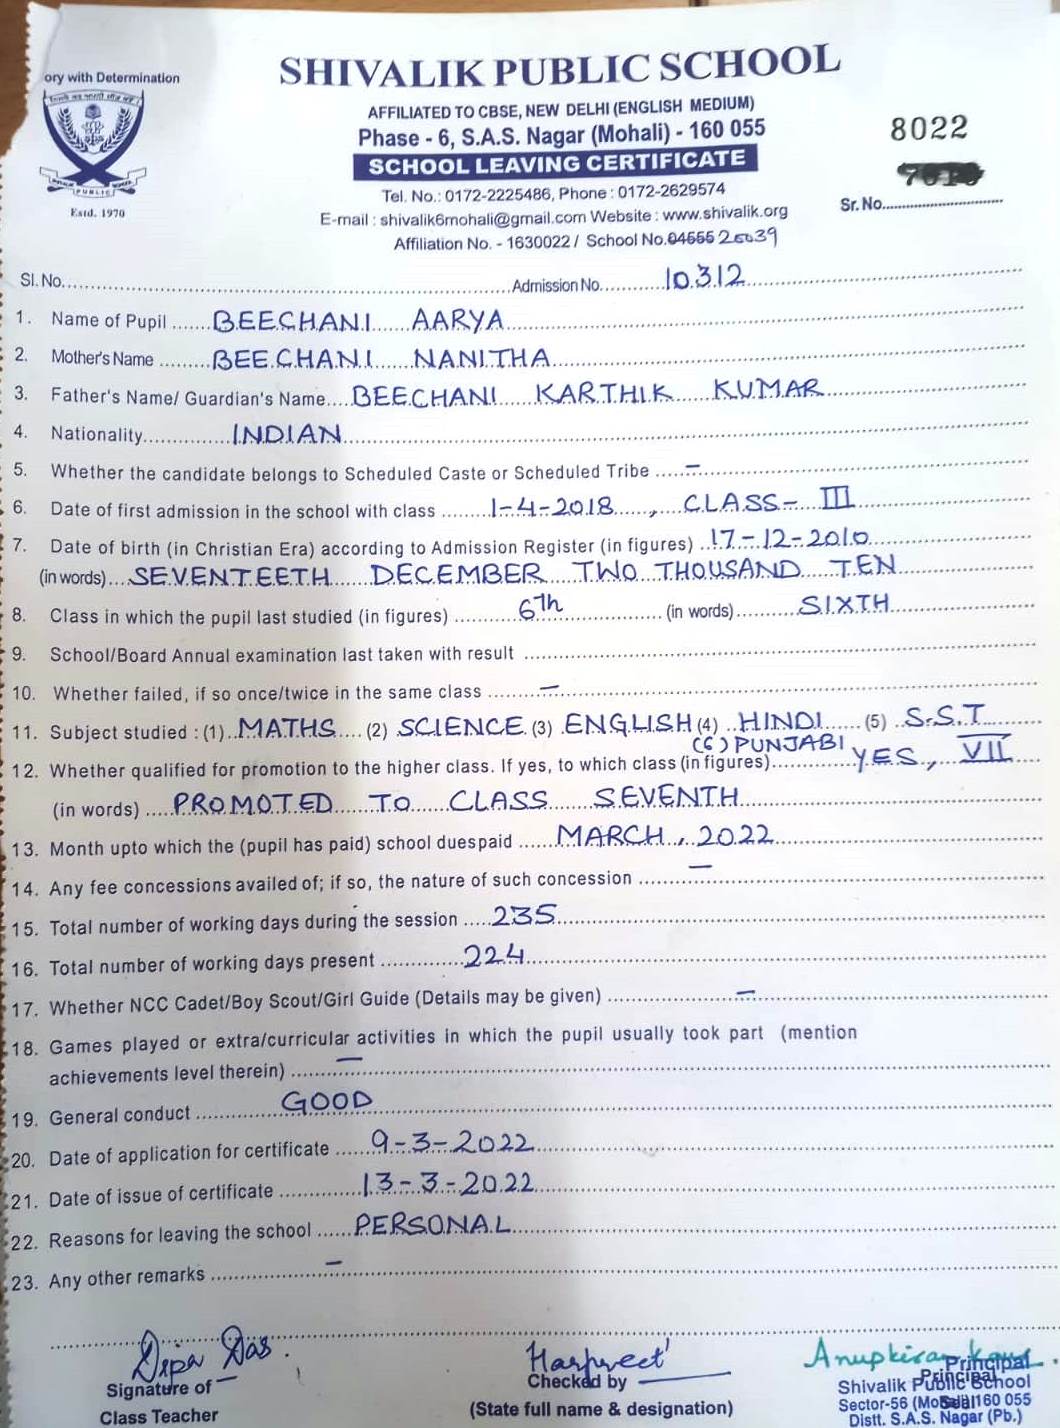 ory with Determination
SHIVALIK PUBLIC SCHOOL
AFFILIATED TO CBSE, NEW DELHI (ENGLISH MEDIUM)
Phase - 6, S.A.S. Nagar (Mohali) - 160 055
8022
SCHOOL LEAVING CERTIFICATE
Tel. No.: 0172-2225486, Phone : 0172-2629574
Sr. No.
E-mail : shivalik6mohali@gmail.com Website : www.shivalik.org
PUBLIC
Estd. 1970
Affiliation No. - 1630022 / School No. 04555 20039
Sl. No. Admission No. 10312
1. Name of Pupil BEECHANI AARYA
2. Mother's Name BEECHANI NANITHA
3. Father's Name/ Guardian's Name BEECHANI KARTHIK KUMAR
4. Nationality INDIAN
5. Whether the candidate belongs to Scheduled Caste or Scheduled Tribe –
6. Date of first admission in the school with class 1-4-2018, CLASS- III
7. Date of birth (in Christian Era) according to Admission Register (in figures) 17-12-2010
(in words) SEVENTEETH DECEMBER TWO THOUSAND TEN
8. Class in which the pupil last studied (in figures) 6th (in words) SIXTH
9. School/Board Annual examination last taken with result
10. Whether failed, if so once/twice in the same class –
11. Subject studied : (1) MATHS (2) SCIENCE (3) ENGLISH (4) HINDI (5) S.S.T
(6) PUNJABI
12. Whether qualified for promotion to the higher class. If yes, to which class (in figures) YES, VII
(in words) PROMOTED TO CLASS SEVENTH
13. Month upto which the (pupil has paid) school duespaid MARCH, 2022
14. Any fee concessions availed of; if so, the nature of such concession –
15. Total number of working days during the session 235
16. Total number of working days present 224
17. Whether NCC Cadet/Boy Scout/Girl Guide (Details may be given) –
18. Games played or extra/curricular activities in which the pupil usually took part (mention
achievements level therein) –
19. General conduct GOOD
20. Date of application for certificate 9-3-2022
21. Date of issue of certificate 13-3-2022
22. Reasons for leaving the school PERSONAL
23. Any other remarks –
Dipa Das.
Signature of
Class Teacher
Harpreet
Checked by
(State full name & designation)
Anupkiran Kaur
Principal
Principal
Shivalik Public School
Sector-56 (Mohali) 160 055
Seal
Distt. S.A.S. Nagar (Pb.)